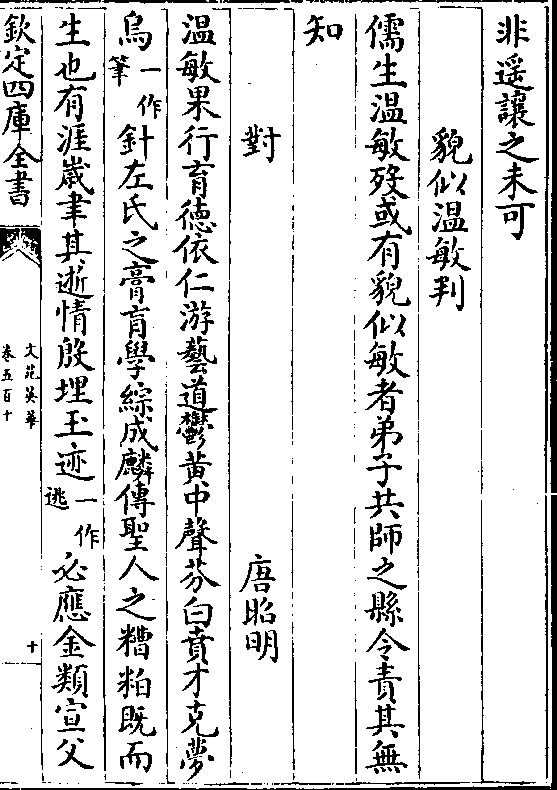 非遥讓之未可
貌似温敏判
儒生温敏歿或有貌似敏者弟子共師之縣令責其無
知
對 唐昭明
温敏果行育德依仁游藝道鬱黄中聲芬白賁才克夢
鳥一作筆針左氏之膏肓學綜成麟傳聖人之糟粕既而
生也有涯嵗聿其逝情殷埋玉迹一作逃必應金類宣父
欽定四庫全書
文苑英華
卷五百十
十